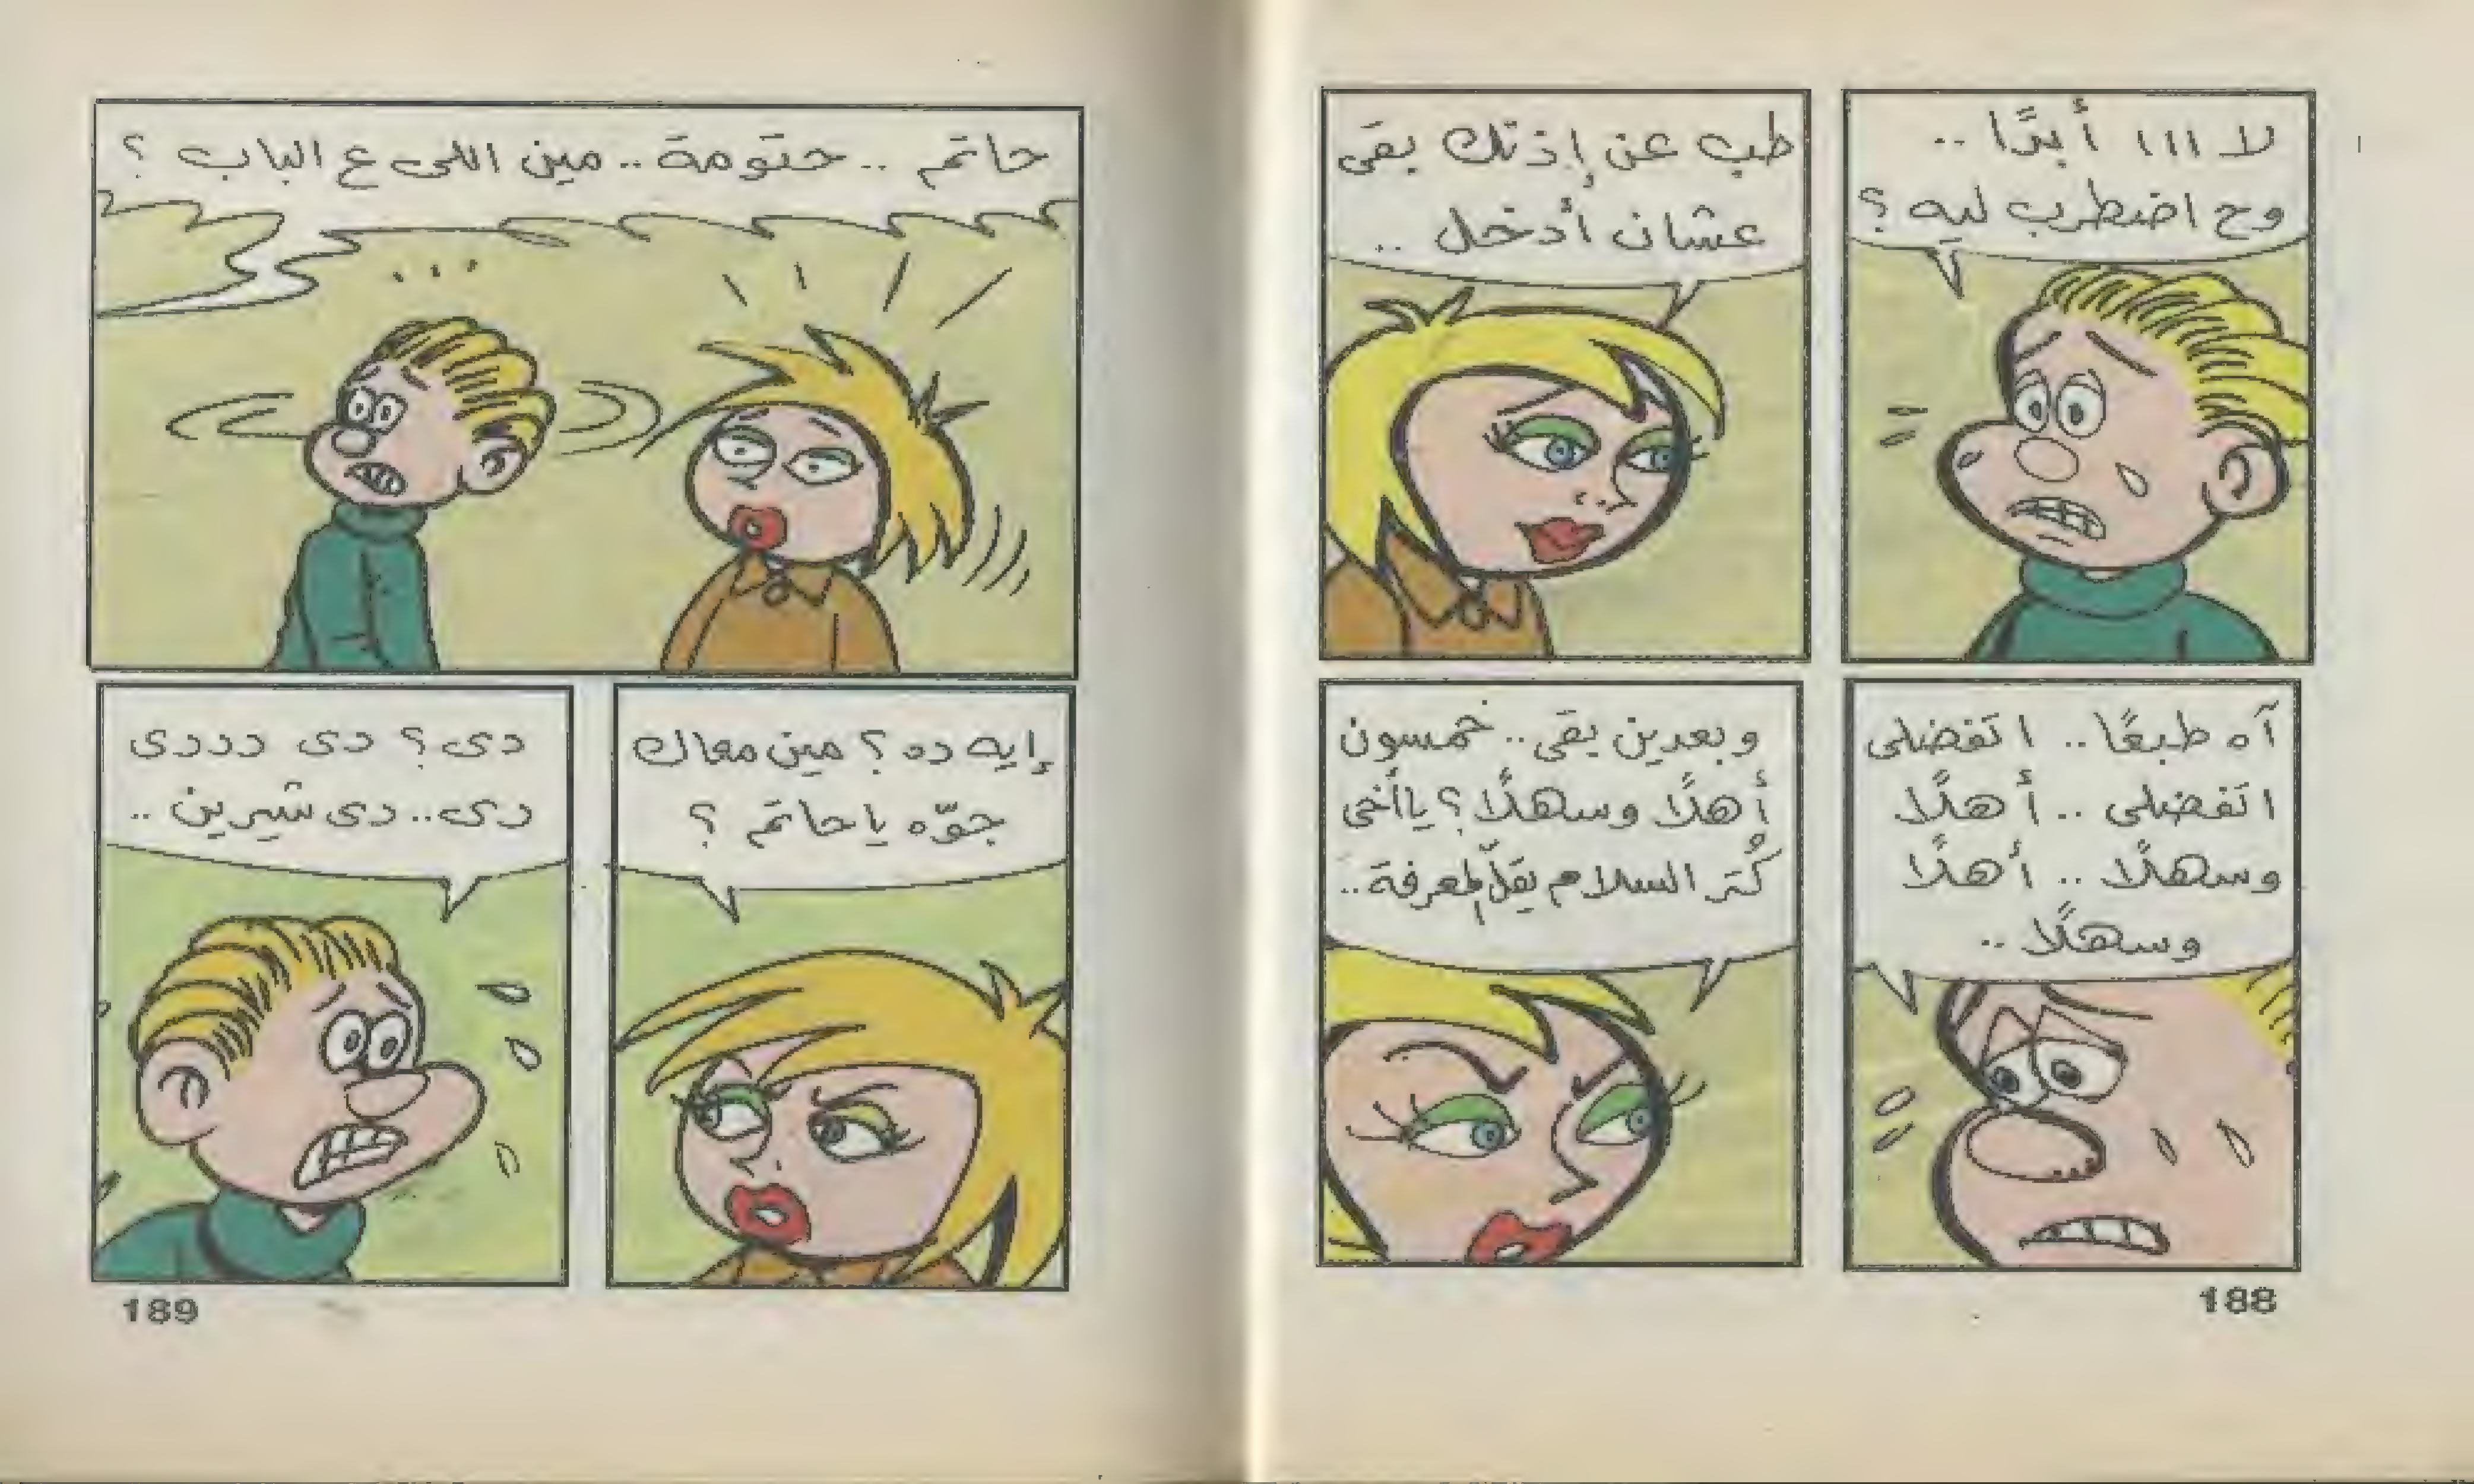 لا ااا أبدًا ..
وح اضطرب ليه ؟
طب عن إذنك بقى
عشان أدخل ..
آه طبعًا .. اتفضلى
اتفضلى .. أهلًا
وسهلًا .. أهلًا
وسهلًا ..
وبعدين بقى .. خمسون
أهلًا وسهلًا ؟ ياأخى
كُتر السلام يقلّ المعرفة ..
188
حاتم .. حتومة .. مين اللى ع الباب ؟
إيه ده ؟ مين معاك
جوّه ياحاتم ؟
دى ؟ دى ددددى
دى .. دى شيرين ..
189